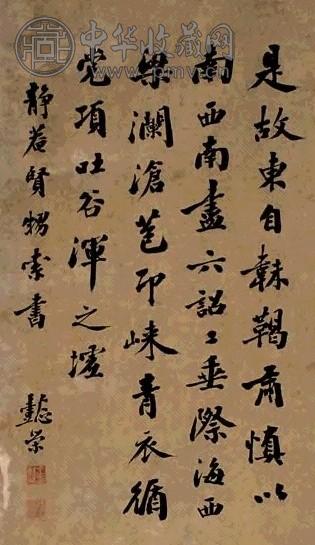 中华收藏网
是故東自靺鞨肅慎以
南西南盡六詔〻垂際海西
瀾滄苞卭崍青衣循
党項吐谷渾之
靜若賢甥索書
懿榮